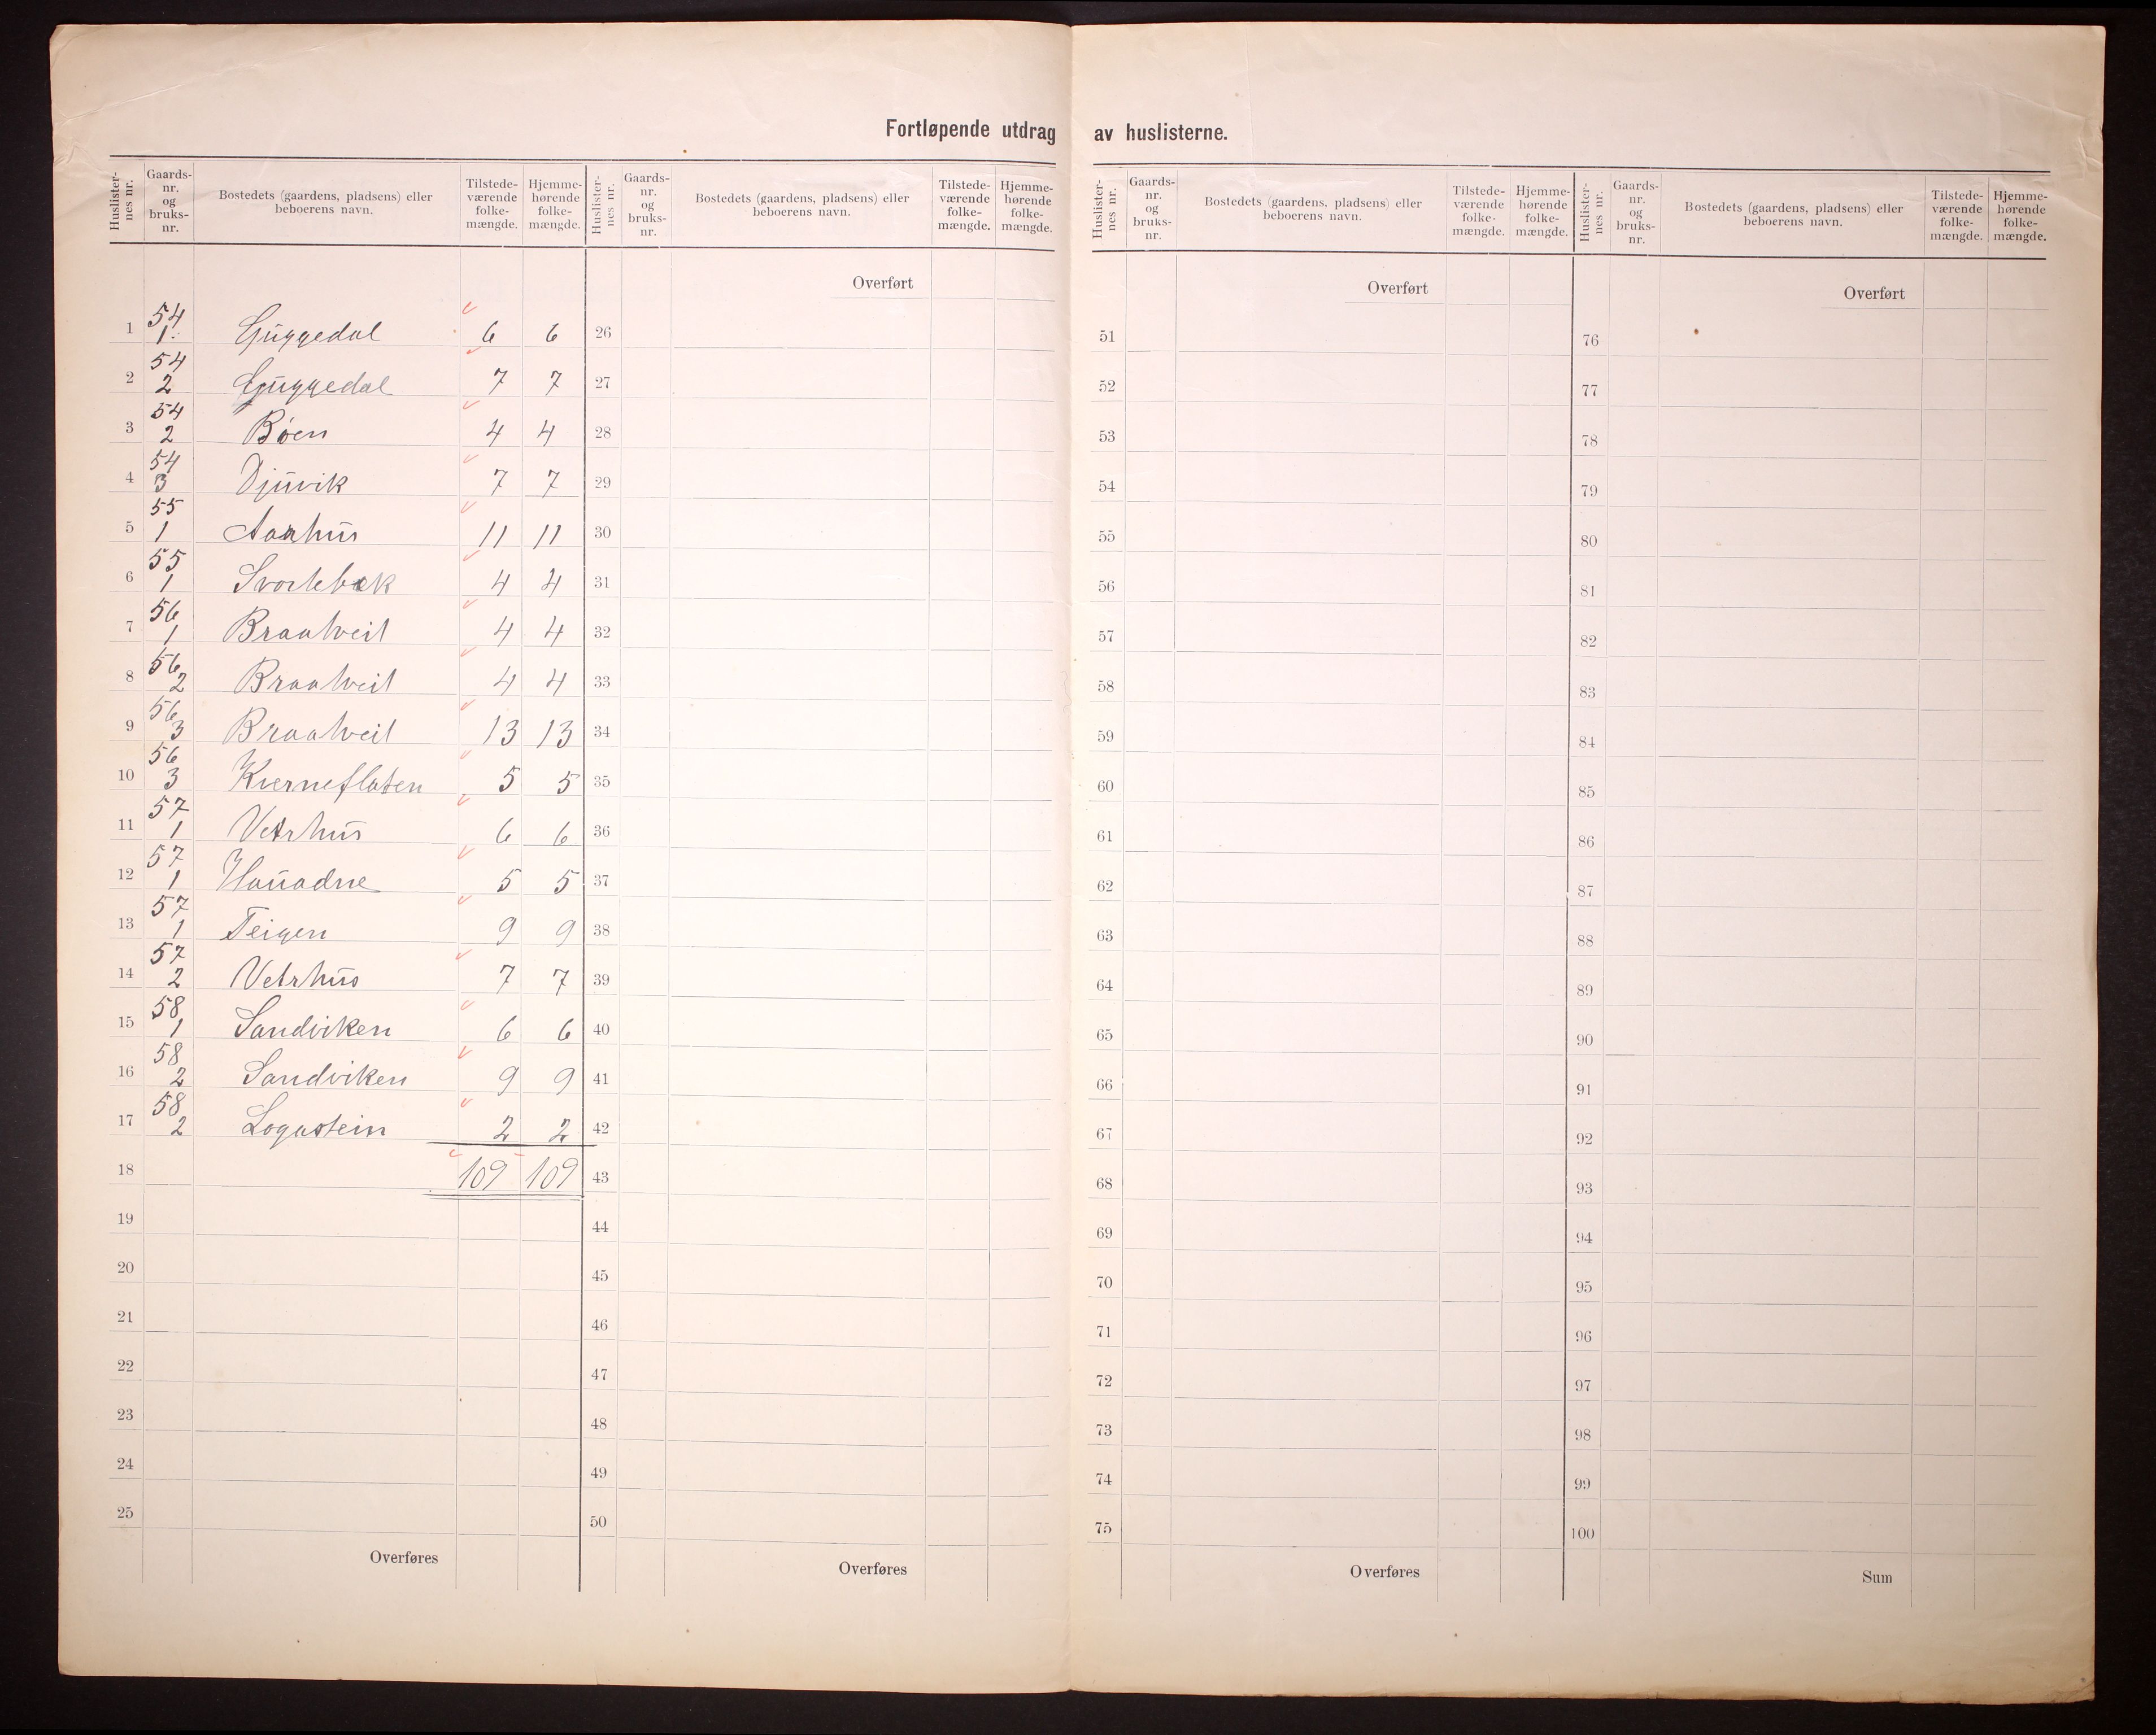 Fortløpende utdrag av huslisterne.
Huslister-nes nr. Gaards-nr. og bruks-nr. Bostedets (gaardens, pladsens) eller beboerens navn. Tilstede-værende folke-mængde. Hjemme-hørende folke-mængde.
Huslister-nes nr. Gaards-nr. og bruks-nr. Bostedets (gaardens, pladsens) eller beboerens navn. Tilstede-værende folke-mængde. Hjemme-hørende folke-mængde.
Huslister-nes nr. Gaards-nr. og bruks-nr. Bostedets (gaardens, pladsens) eller beboerens navn. Tilstede-værende folke-mængde. Hjemme-hørende folke-mængde.
Huslister-nes nr. Gaards-nr. og bruks-nr. Bostedets (gaardens, pladsens) eller beboerens navn. Tilstede-værende folke-mængde. Hjemme-hørende folke-mængde.
Overført Overført Overført
1 54 1 Guggedal 6 6 26 51 76
2 54 2 Guggedal 7 7 27 52 77
3 54 2 Bøen 4 4 28 53 78
4 54 3 Djuvik 7 7 29 54 79
5 55 1 Aarhus 11 11 30 55 80
6 55 1 4 4 31 56 81
7 56 1 Braatveit 4 4 32 57 82
8 56 2 Braatveit 4 4 33 58 83
9 56 3 Braatveit 13 13 34 59 84
10 56 3 Kverneflaten 5 5 35 60 85
11 57 1 Vetrhus 6 6 36 61 86
12 57 1 5 5 37 62 87
13 57 1 Teigen 9 9 38 63 88
14 57 2 Vetrhus 7 7 39 64 89
15 58 1 Sandviken 6 6 40 65 90
16 58 2 Sandviken 9 9 41 66 91
17 58 2 Logastein 2 2 42 67 92
18 109 109 43 68 93
19 44 69 94
20 45 70 95
21 46 71 96
22 47 72 97
23 48 73 98
24 49 74 99
25 50 75 100
Overføres Overføres Overføres Sum